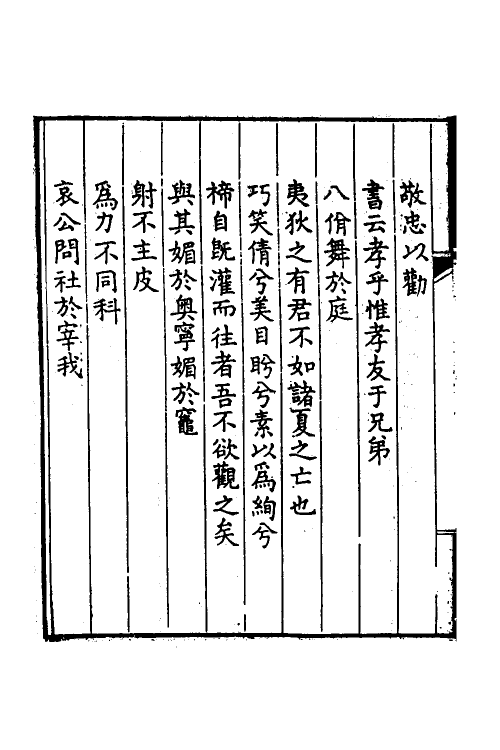 敬忠以勸
書云孝乎惟孝友于兄弟
八佾舞於庭
夷狄之有君不如諸夏之亡也
巧笑倩兮美目盻兮素以爲絢兮
禘自既灌而往者吾不欲觀之矣
與其媚於奥寧媚於竈
射不主皮
爲力不同科
哀公問社於宰我